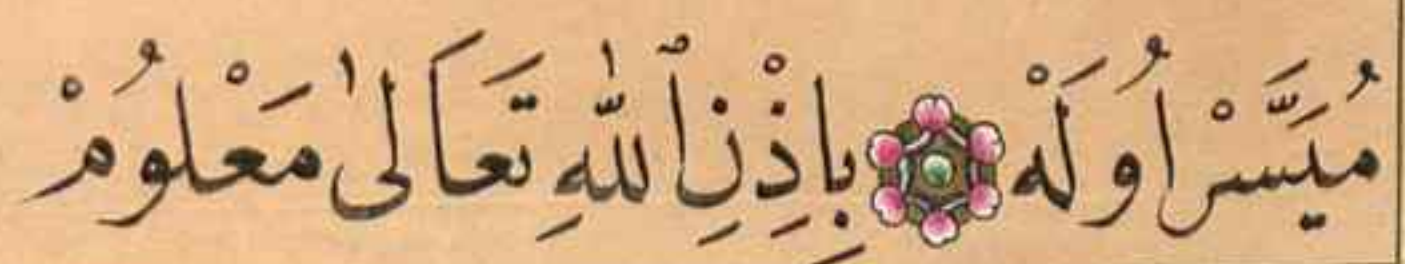 مُيَسَّرْ اُولَهْ بِاِذْنِ ٱللّٰهِ تَعَالىٰ مَعْلُومْ